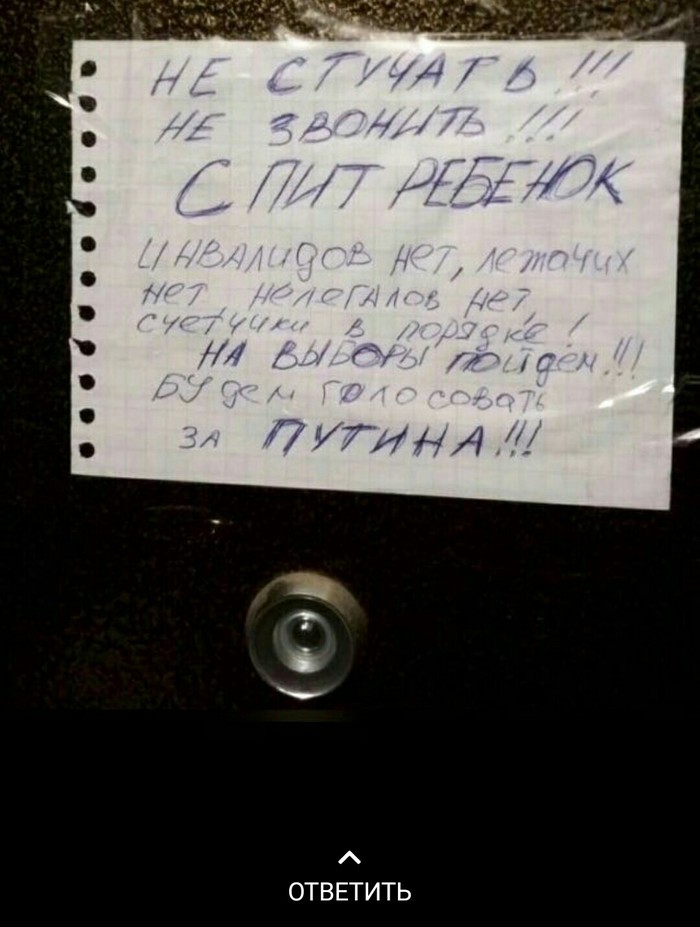 НЕ СТУЧАТЬ!!!
НЕ ЗВОНИТЬ!!!
СПИТ РЕБЕНОК
ИНВАЛИДОВ НЕТ, лежачих
нет нелегалов нет,
счетчики в порядке!
НА ВЫБОРЫ пойдем!!!
Будем голосовать
ЗА ПУТИНА!!!
ОТВЕТИТЬ